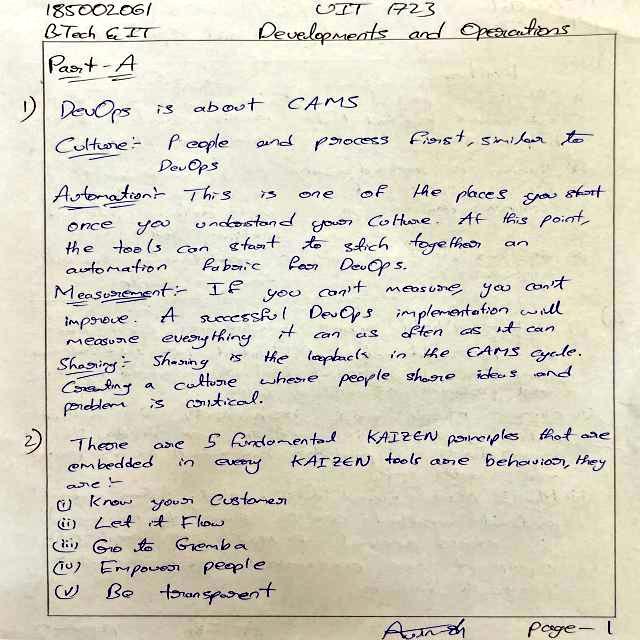 185002061 UIT 1723
B.Tech & IT Developments and Operations
Part - A
1) DevOps is about CAMS
Culture:- People and process first, similar to
DevOps
Automation:- This is one of the places you start
once you understand your culture. At this point,
the tools can start to stich together an
automation fabric for DevOps.
Measurement:- If you can't measure, you can't
improve. A successful DevOps implementation will
measure everything it can as often as it can
Sharing:- Sharing is the loopback in the CAMS cycle.
Creating a culture where people share ideas and
problem is critical.
2) There are 5 fundamental KAIZEN principles that are
embedded in every KAIZEN tools are behavior, they
are:-
(i) Know your Customer
(ii) Let it Flow
(iii) Go to Gemba
(iv) Empower people
(v) Be transparent
Page- 1